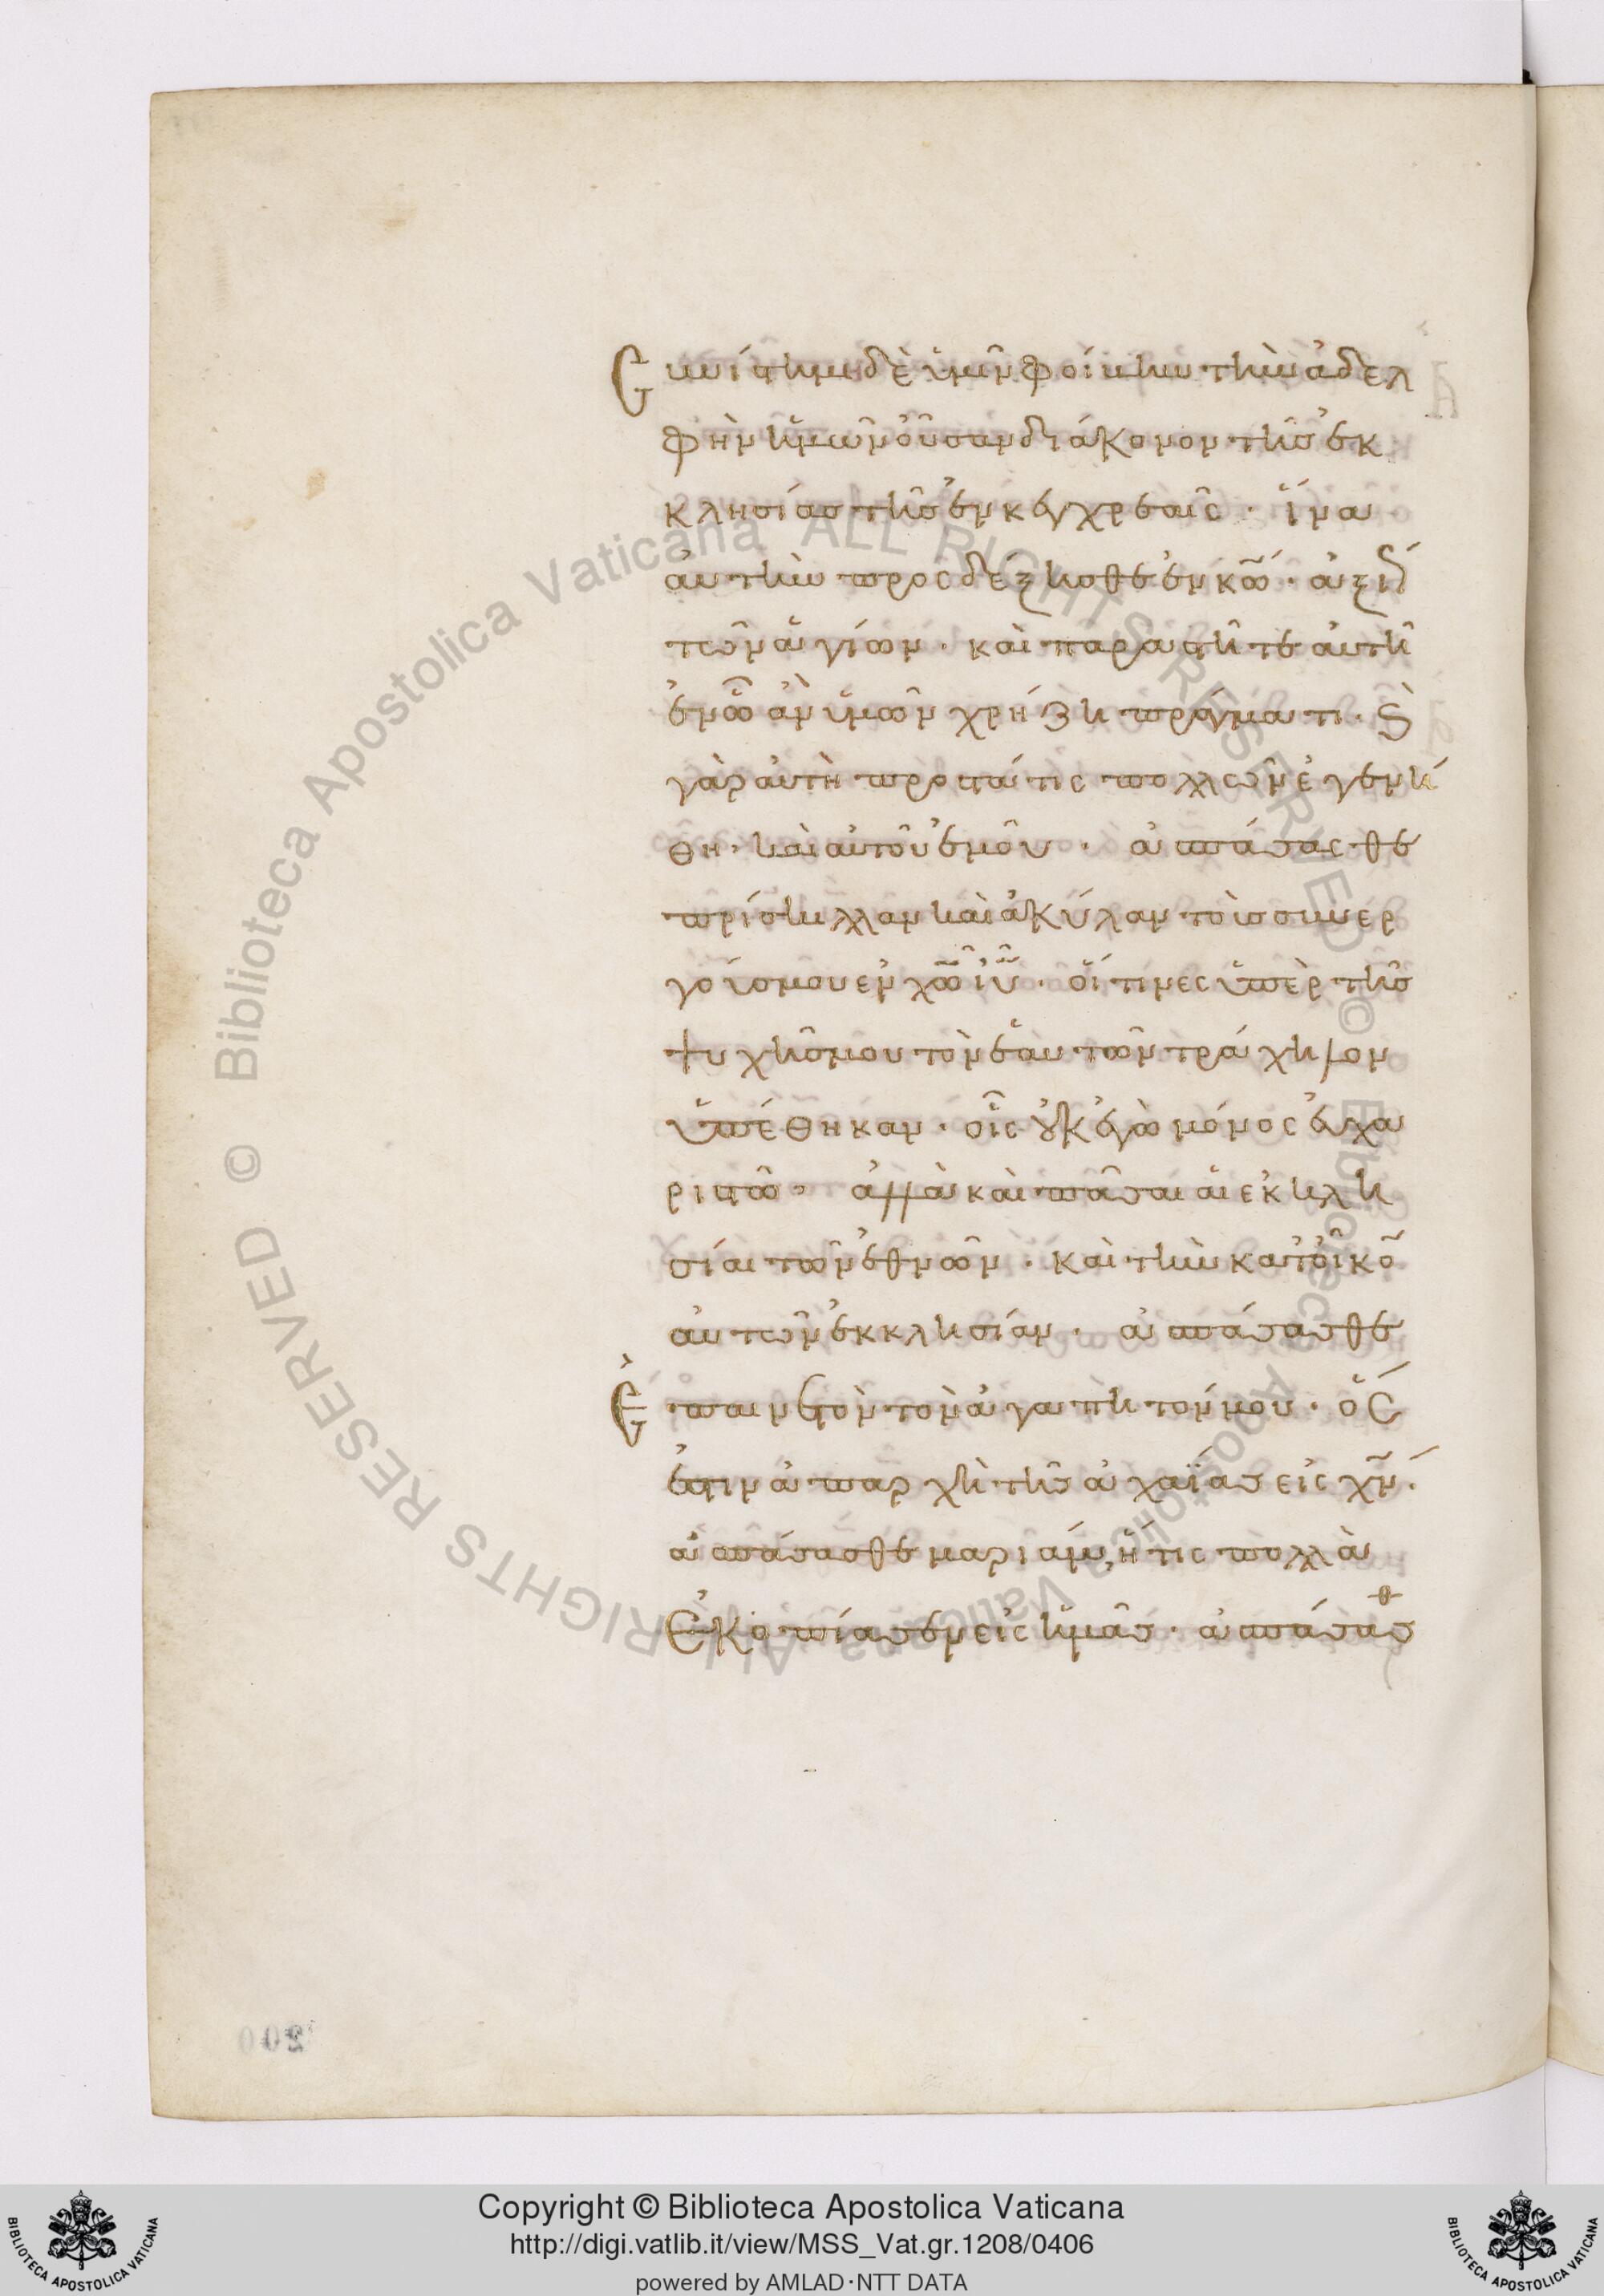 Συνίστημι δὲ ὑμῖν φοίβην τὴν ἀδελ
φὴν ἡμῶν οὖσαν διάκονον τῆς ἐκ
κλησίας τῆς ἐν κεγχρεαῖς · ἵνα
αὐτὴν προσδέξησθε ἐν κῶ · ἀξί
τῶν ἁγίων · καὶ παραστῆτε αὐτῆ
ἐν ὧ ἀν ὑμῶν χρήζη πράγματι · Καὶ
γὰρ αὐτὴ προστάτις πολλῶν ἐγενή
θη · καὶ αὐτοῦ ἐμοῦ · ἀσπάσασθε
πρίσκιλλαν καὶ ἀκύλαν τοὺς συνερ
γούς μου ἐν χῶ ἰῦ · οἵτινες ὑπὲρ τῆς
ψυχῆς μου τὸν ἑαυτῶν τράχηλον
ὑπέθηκαν · οἷς οὐκ ἐγὼ μόνος εὐχα
ριστῶ · ἀλλὰ καὶ πᾶσαι αἱ ἐκκλη
σίαι τῶν ἐθνῶν · καὶ τὴν κατ' οἶκο
αὐτῶν ἐκκλησίαν · ἀσπάσασθε
Ἐπαινετὸν τὸν ἀγαπητόν μου · ὅς
ἐστιν ἀπαρχὴ τῆς ἀχαΐας εἰς χν ·
ἀσπάσασθε μαριάμ, ἥτις πολλὰ
Ἐκοπίασεν εἰς ἡμᾶς · ἀσπάσασθ
200
© Biblioteca Apostolica Vaticana ALL RIGHTS RESERVED © Biblioteca Apostolica Vaticana ALL RIGHTS RESERVED
Copyright © Biblioteca Apostolica Vaticana
http://digi.vatlib.it/view/MSS_Vat.gr.1208/0406
powered by AMLAD·NTT DATA
BIBLIOTECA APOSTOLICA VATICANA
BIBLIOTECA APOSTOLICA VATICANA